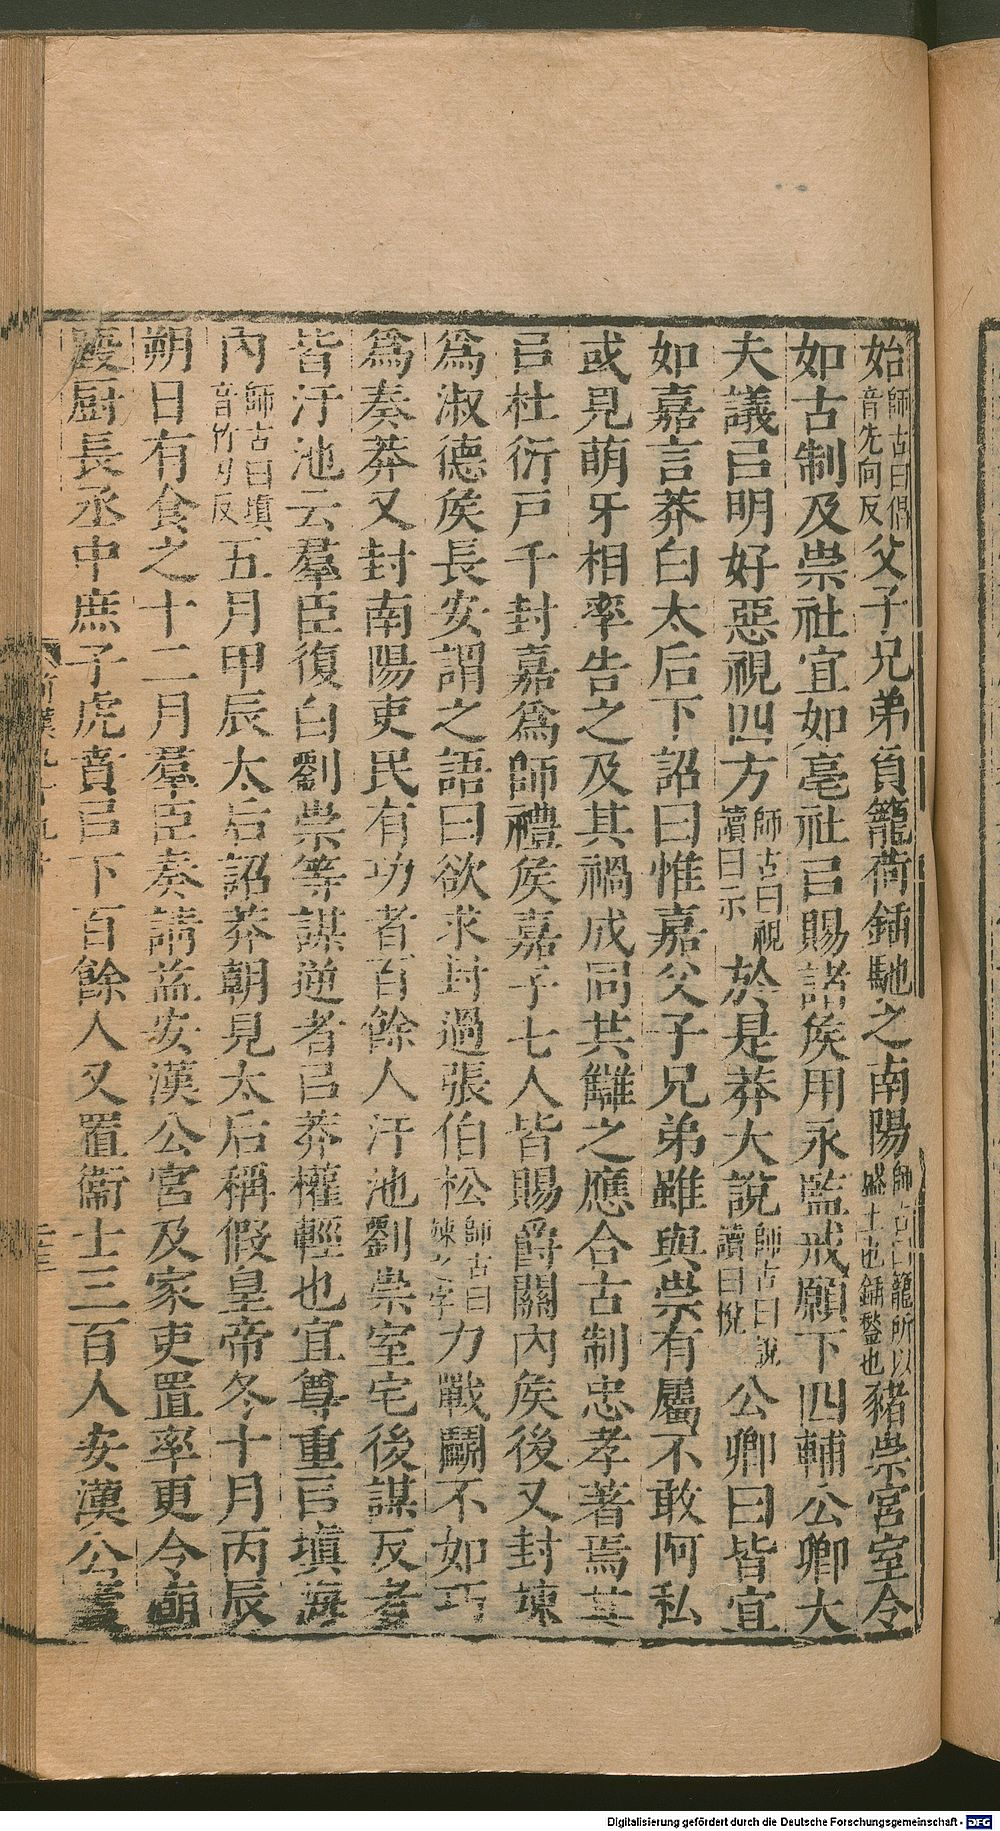 始師古曰倡音先向反父子兄弟負籠荷鍤馳之南陽師古曰籠所以盛土也鍤鍫也豬崇宮室令
如古制及崇社宜如亳社㠯賜諸侯用永監戒願下四輔公卿大
夫議㠯明好惡視四方師古曰視讀曰示於是莽大說師古曰說讀曰悅公卿曰皆宜
如嘉言莽白太后下詔曰惟嘉父子兄弟雖與崇有屬不敢阿私
或見萌牙相率告之及其禍成同共讎之應合古制忠孝著焉其
㠯杜衍戸千封嘉爲師禮侯嘉子七人皆賜爵關內侯後又封竦
爲淑德侯長安謂之語曰欲求封過張伯松師古曰竦之字力戰鬭不如巧
爲奏莽又封南陽吏民有功者百餘人汙池劉崇室宅後謀反者
皆汙池云羣臣復白劉崇等謀逆者㠯莽權輕也宜尊重㠯塡海
內師古曰塡音竹刃反五月甲辰太后詔莽朝見太后稱假皇帝冬十月丙辰
朔日有食之十二月羣臣奏請益安漢公宮及家吏置率更令廟
廄厨長丞中庶子虎賁㠯下百餘人又置衞士三百人安漢公廬
前漢九十九上
Digitalisierung gefördert durch die Deutsche Forschungsgemeinschaft - DFG